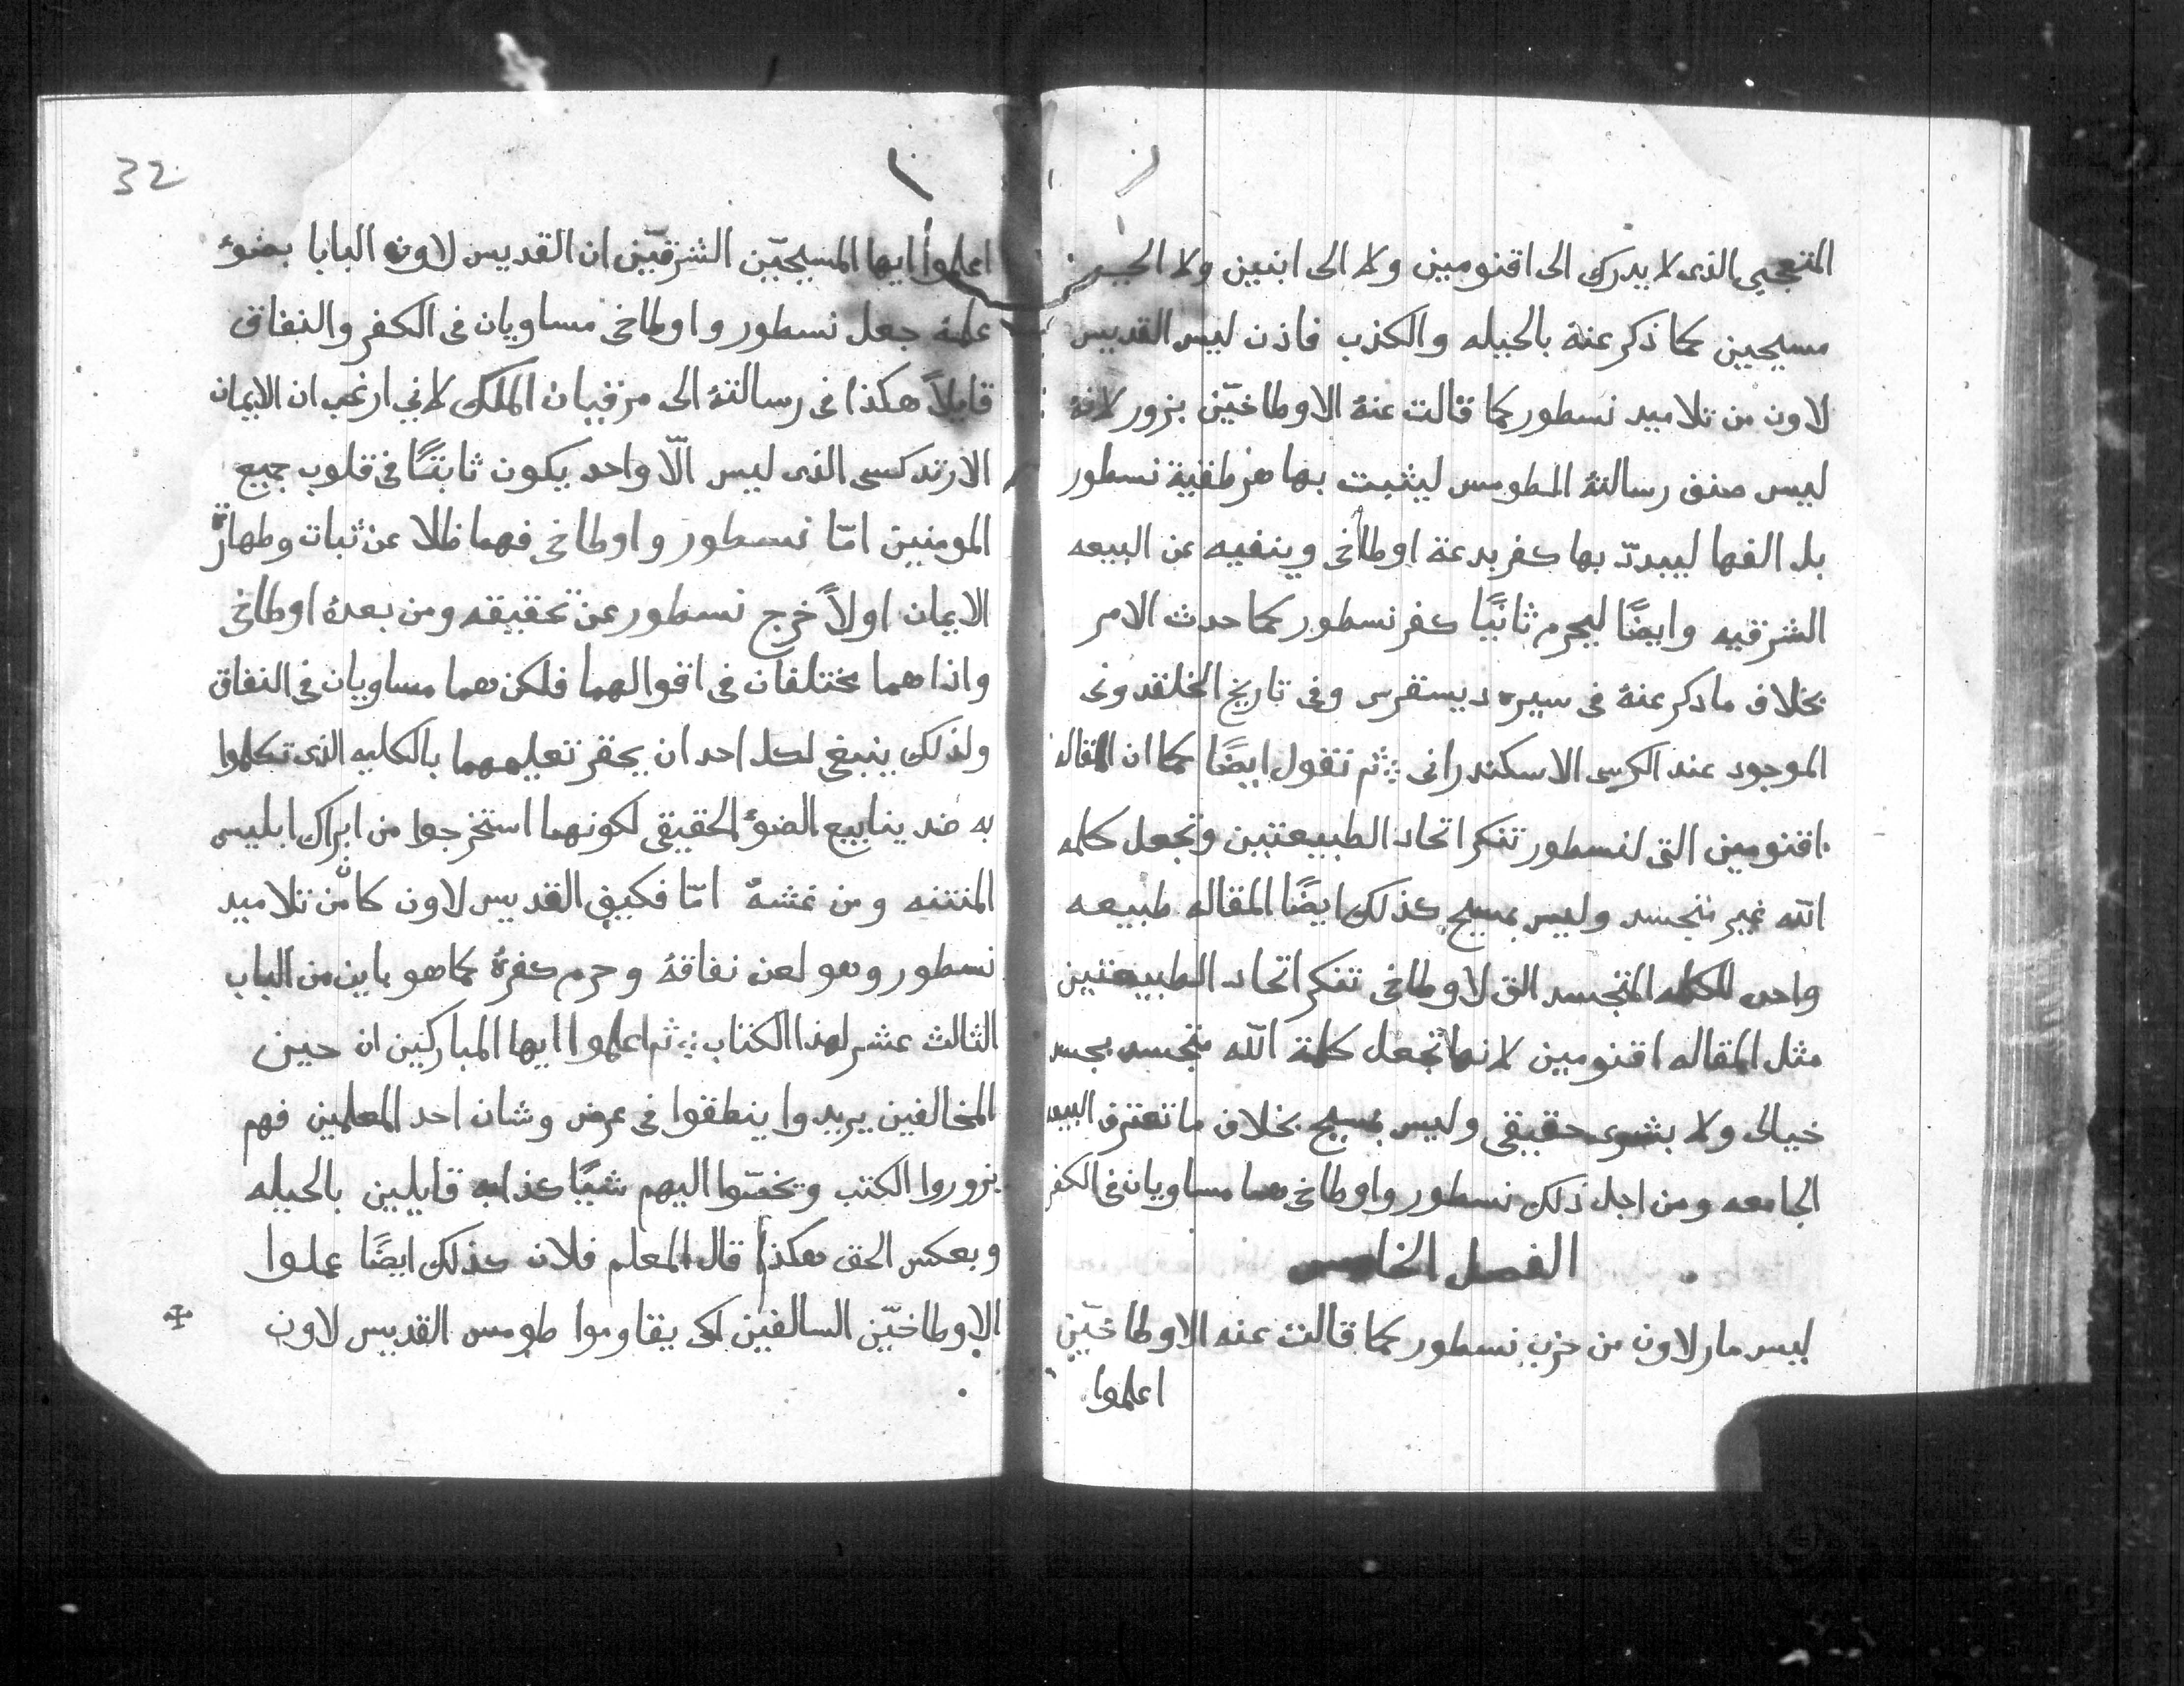 المتعجبي الذى لا يدرك الى اقنومين ولا الى ابنين ولا الى
مسيحيين كما ذكر عنهُ بالحيله والكذب فاذن ليس القديس
لاون من تلاميد نسطور كما قالت عنهُ الاوطاخيّن بزور لانهُ
ليس صنف رسالتهُ المطومس ليثبت بها هرطقية نسطور
بل الفها ليبددّ بها كفر بدعة اوطاخى وينفيه عن البيعه
الشرقيه وايضًا ليحرم ثانيًا كفر نسطور كما حدث الامر
بخلاف ما دكر عنهُ فى سيره ديسقرس وفى تاريخ الخلقدونى
الموجود عند الكرسى الاسكندرانى ثم تقول ايضًا كما ان المقاله
اقنومين التى لنسطور تنكر اتحاد الطبيعتين وتجعل كلمه
الله غير متجسد وليس بمسيح كذلك ايضًا المقاله طبيعه
واحده للكلمه المتجسد التى لاوطاخى تنكر اتحاد الطبيعتين
مثل المقاله اقنومين لانها تجعل كلمة الله متجسد بجسد
خيالى ولا بشرى حقيقى وليس بمسيح بخلاف ما تعترف البيعه
الجامعه ومن اجل ذلك نسطور واوطاخى هما مساويان فى الكفر
الفصل الخامس
ليس مار لاون من حزب نسطور كما قالت عنه الاوطاخيّن
اعلموا
32
اعلموا ايها المسيحيّن الشرقيّن ان القديس لاون البابا بضوء
علمهُ جعل نسطور واوطاخى مساويان فى الكفر والنفاق
قايلاً هكذا فى رسالتهُ الى مرقيان الملك لانى ارغب ان الايمان
الارتدكسى الذى ليس الّا واحد يكون ثابتًا فى قلوب جميع
المومنين امّا نسطور واوطاخى فهما ظلا عن ثبات وطهارة
الايمان اولاً خرج نسطور عن تحقيقه ومن بعدهُ اوطاخى
واذا هما مختلفان فى اقوالهما فلكن هما مساويان فى النفاق
ولذلك ينبغى لكل احد ان يحقر تعليمهما بالكليه الذى تكلموا
به ضد ينابيع الضوء الحقيقى لكونهما استخرجوا من ابراك ابليس
المنتنه ومن غشهُ امّا فكيف القديس لاون كان من تلاميد
نسطور وهو لعن نفاقهُ وحرم كفرهُ كما هو باين من الباب
الثالث عشر لهذا الكتاب ثم اعلموا ايها المباركين ان حين
المخالفين يريدوا ينطقوا فى عرض وشان احد المعلمين فهم
يزوروا الكتب ويخصّوا اليهم شيًا كذابه قايلين بالحيله
وبعكس الحق هكذا قال المعلم فلان كذلك ايضًا عملوا
الاوطاخيّن السالفين لكى يقاوموا طومس القديس لاون